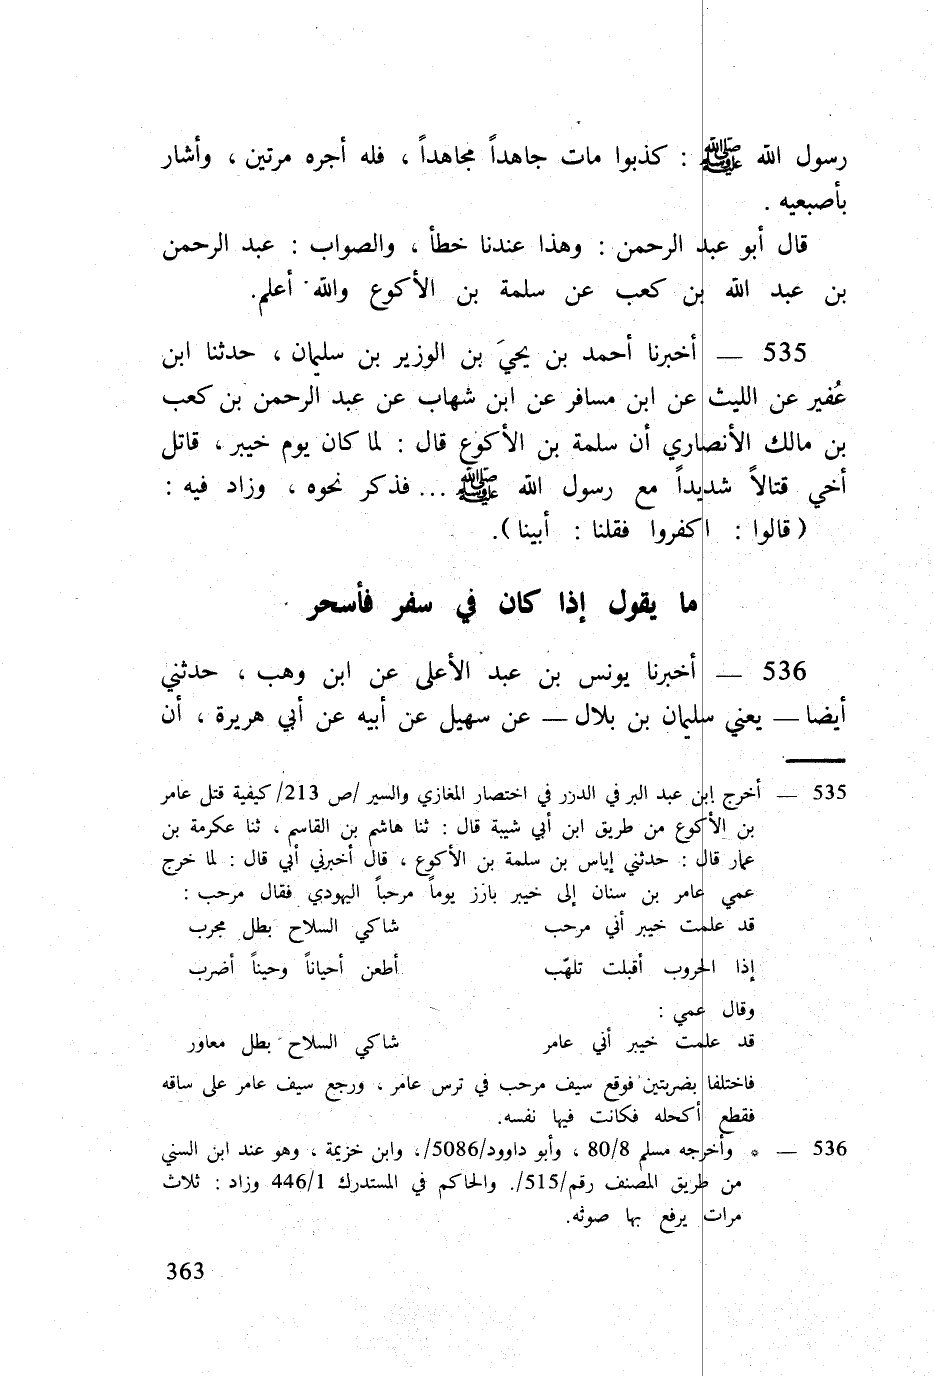 رسول الله ﷺ : كذبوا مات جاهداً مجاهداً ، فله أجره مرتين ، وأشار
بأصبعيه .
قال أبو عبد الرحمن : وهذا عندنا خطأ ، والصواب : عبد الرحمن
بن عبد الله بن كعب عن سلمة بن الأكوع والله أعلم.
535 — أخبرنا أحمد بن يحيَ بن الوزير بن سليمان ، حدثنا ابن
عُفير عن الليث عن ابن مسافر عن ابن شهاب عن عبد الرحمن بن كعب
بن مالك الأنصاري أن سلمة بن الأكوع قال : لما كان يوم خيبر ، قاتل
أخي قتالاً شديداً مع رسول الله ﷺ ... فذكر نحوه ، وزاد فيه :
( قالوا : اكفروا فقلنا : أبينا ).
ما يقول إذا كان في سفر فأسحر
536 — أخبرنا يونس بن عبد الأعلى عن ابن وهب ، حدثني
أيضا — يعني سليمان بن بلال — عن سهيل عن أبيه عن أبي هريرة ، أن
535 — أخرج إبن عبد البر في الدرر في اختصار المغازي والسير /ص 213/ كيفية قتل عامر
بن الأكوع من طريق ابن أبي شيبة قال : ثنا هاشم بن القاسم ، ثنا عكرمة بن
عمار قال : حدثني إياس بن سلمة بن الأكوع ، قال أخبرني أبي قال : لما خرج
عمي عامر بن سنان إلى خيبر بارز يوماً مرحباً اليهودي فقال مرحب :
قد علمت خيبر أني مرحب شاكي السلاح بطل مجرب
إذا الحروب أقبلت تلهّب أطعن أحياناً وحيناً أضرب
وقال عمي :
قد علمت خيبر أني عامر شاكي السلاح بطل معاور
فاختلفا بضربتين فوقع سيف مرحب في ترس عامر ، ورجع سيف عامر على ساقه
فقطع أكحله فكانت فيها نفسه.
536 — * وأخرجه مسلم 80/8 ، وأبو داوود/5086/، وابن خزيمة ، وهو عند ابن السني
من طريق المصنف رقم/515/. والحاكم في المستدرك 446/1 وزاد : ثلاث
مرات يرفع بها صوته.
363